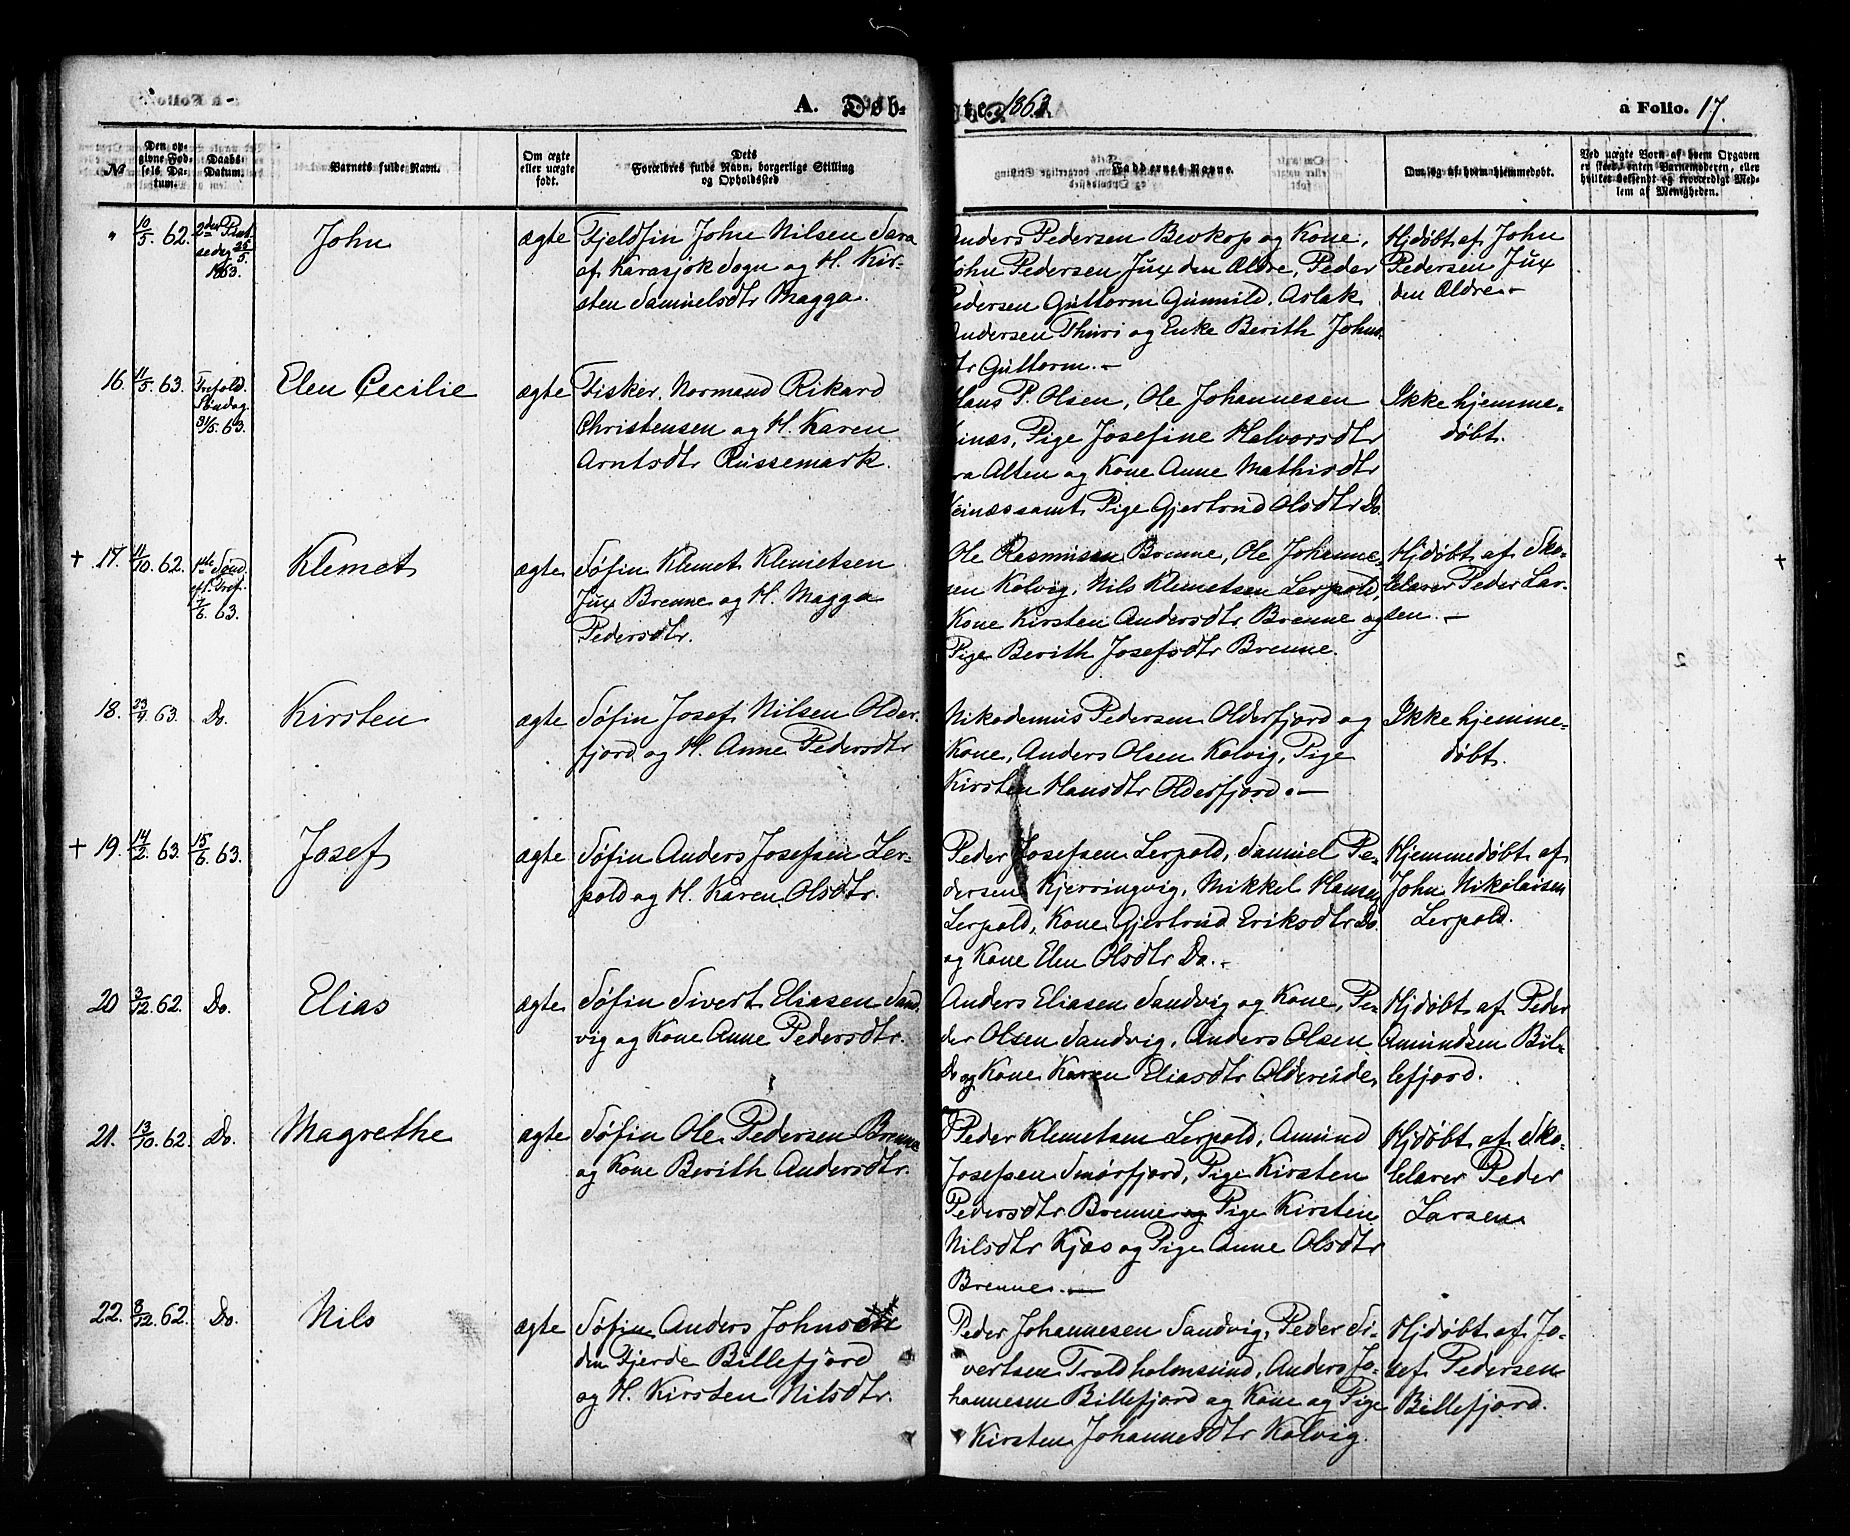 A. Døb-
te. 1863.
a Folio. 17.
No
Den op-
givne Fød-
sels Da-
tum.
Daabs-
Datum.
Barnets fulde Navn.
Om ægte
eller uægte
født.
Dets
Forældres fulde Navn, borgerlige Stilling
og Opholdssted
Faddernes Navne.
Om, og af hvem hjemmedøbt.
Ved uægte Børn af hvem Opgaven
er skeet, enten Barnemoderen, eller
hvilket bekjendt og troværdigt Med-
lem af Menigheden.
" 10/5. 62. 2den Pint-
sedag 25/5.
1863.
John
ægte
Fjeldfin John Nilsen Sara
af Karasjok Sogn og H. Kir-
sten Samuelsdtr Magga.
Anders Pedersen Beskop og Kone,
John Pedersen Jux den Ældre, Peder
Pedersen Guttorm Gunnild, Aslak
Andersen Thuri og Enke Berith Johns-
dtr Guttorm.-
Hjdøbt af John
Pedersen Jux
den Ældre.-
16. 11/5 63. Trefold.
Søndag
31/5. 63.
Elen Cecilie
ægte
Fisker, Normand Rikard
Christensen og H. Karen
Arntsdtr Russemark.
Hans P. Olsen, Ole Johannesen
Pige Josefine Halvorsdtr
fra Alten og Kone Anne Mathisdtr
samt Pige Gjertrud Olsdtr Do.
Ikke hjemme-
døbt.
† 17. 11/10. 62. 1ste Sønd.
ef. Tref.
7/6. 63.
Klemet
ægte
Søfin Klemet Klemetsen
Jux Brenne og H. Magga
Pedersdtr.
Ole Rasmussen Brenne, Ole Johanne-
sen Kolvig, Nils Klemetsen Lerpold,
Kone Kirsten Andersdtr Brenne og
Pige Berith Josefsdtr Brenne.
Hjdøbt af Sko-
lelærer Peder Lar-
sen.-
†
18. 23/4. 63. Do.
Kirsten
ægte
Søfin Josef Nilsen Older-
fjord og H. Anne Pedersdtr
Nikodemus Pedersen Olderfjord og
Kone, Anders Olsen Kolvig, Pige
Kirsten Hansdtr Olderfjord.-
Ikke hjemme-
døbt.
† 19. 14/2. 63. 15/6. 63.
Josef
ægte
Søfin Anders Josefsen Ler-
pold og H. Karen Olsdtr.
Peder Josefsen Lerpold, Samuel Pe-
dersen Kjerringvig, Mikkel Hansen
Lerpold, Kone Gjertrud Eriksdtr Do.
og Kone Elen Olsdtr Do.-
Hjemmedøbt af
John Nikolaisen
Lerpold.
20 3/12. 62. Do.
Elias
ægte
Søfin Sivert Eliasen Sand-
vig og Kone Anne Pedersdtr.
Anders Eliasen Sandvig og Kone, Pe-
der Olsen Sandvig, Anders Olsen
Do og Kone Karen Eliasdtr Oldereide
Hjdøbt af Peder
Amundsen Bil-
lefjord.
21. 13/10. 62. Do.
Magrethe
ægte
Søfin Ole Pedersen Brenne
og Kone Berith Andersdtr.
Peder Klemetsen Lerpold, Amund
Josefsen Smørfjord, Pige Kirsten
Pedersdtr Brenne og Pige Kirsten
Nilsdtr Kjæs og Pige Anne Olsdtr
Brenne.-
Hjdøbt af Sko-
lelærer Peder
Larsen.
22. 8/12. 62. Do.
Nils
ægte
Søfin Anders Johnsen
den Fjerde Billefjord
og H. Kirsten Nilsdtr.
Peder Johannesen Sandvig, Peder Si-
vertsen Troldholmsund, Anders Jo-
hannesen Billefjord og Kone og Pige
Kirsten Johannesdtr Kolvig.
Hjdøbt af Jo-
sef Pedersen
Billefjord.